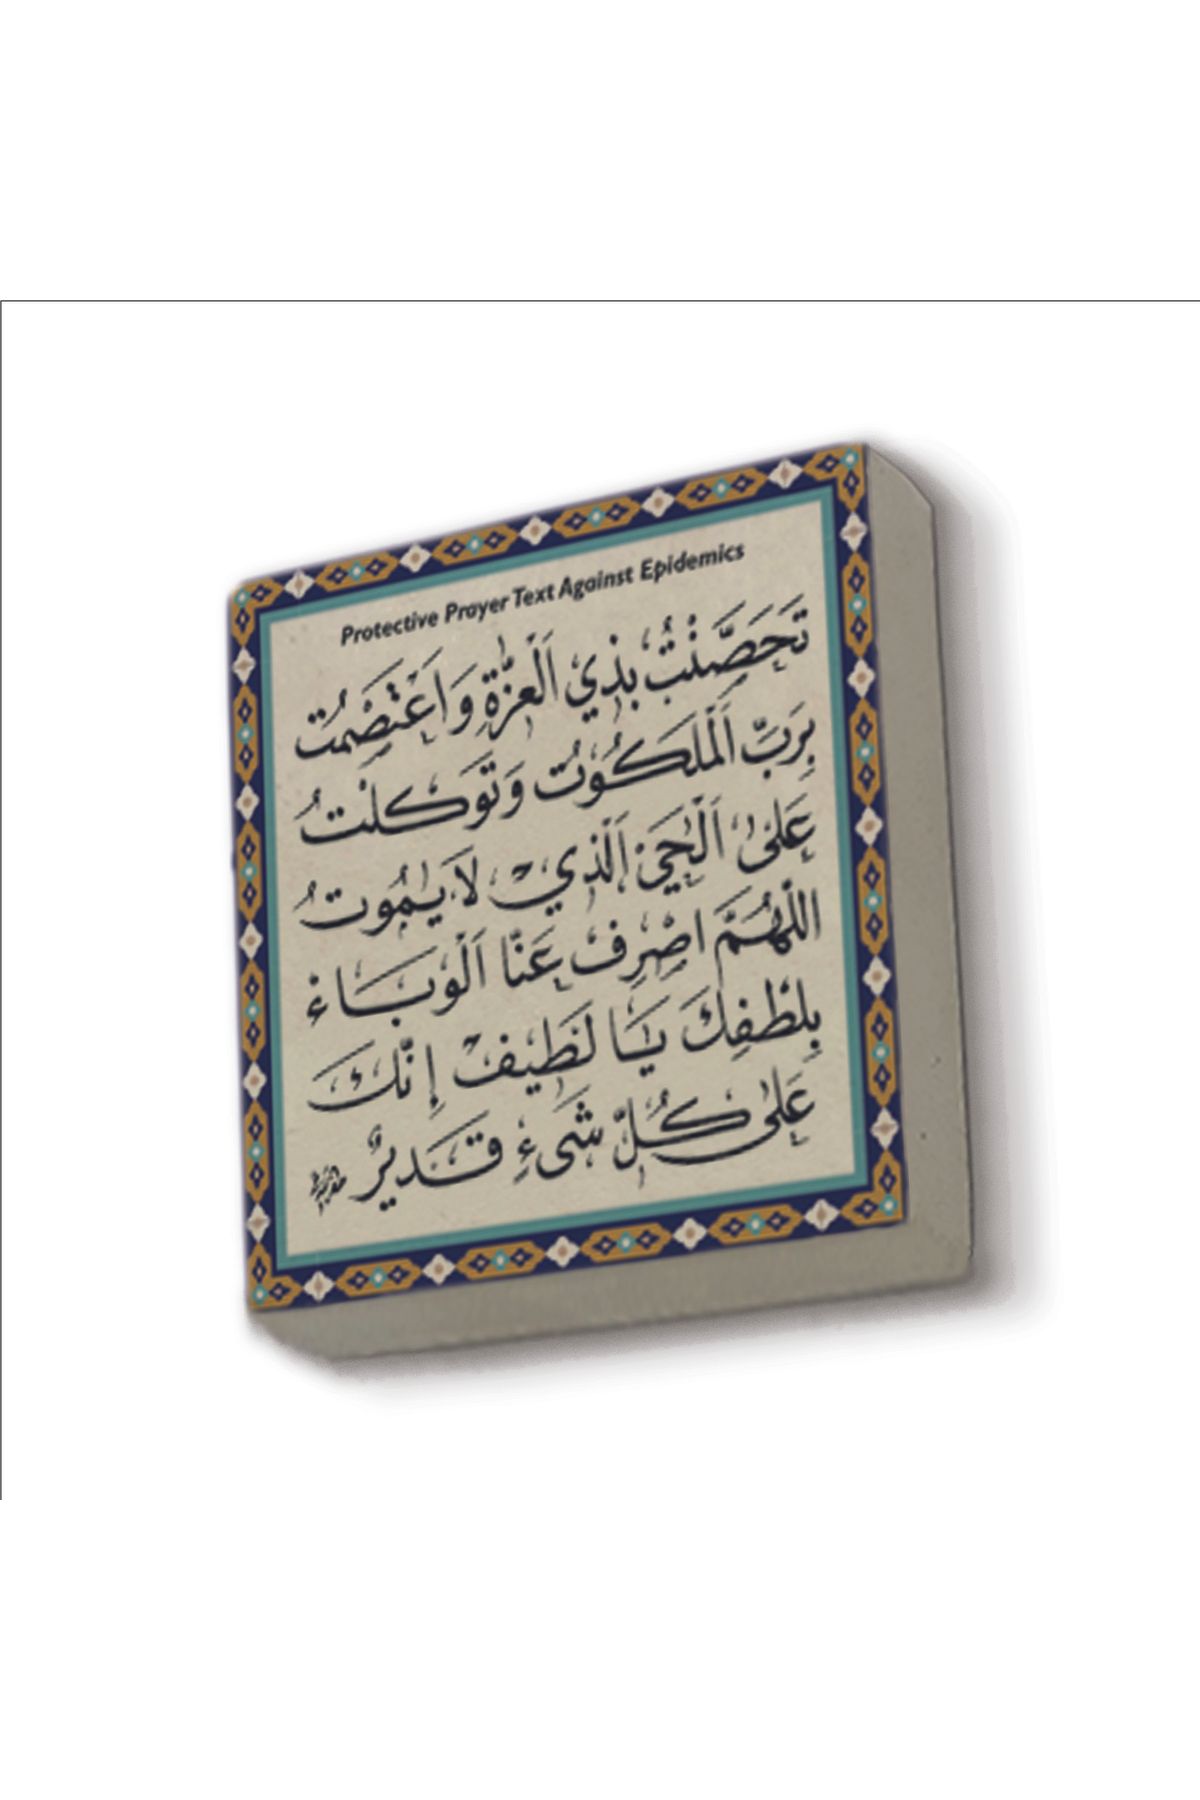 Protective Prayer Text Against Epidemics
تَحَصَّنْتُ بِذِي الْعِزَّةِ وَاعْتَصَمْتُ
بِرَبِّ الْمَلَكُوتِ وَتَوَكَّلْتُ
عَلَى الْحَيِّ الَّذِي لَا يَمُوتُ
اللّٰهُمَّ اصْرِفْ عَنَّا الْوَبَاءَ
بِلُطْفِكَ يَا لَطِيفُ إِنَّكَ
عَلَى كُلِّ شَيْءٍ قَدِيرٌ